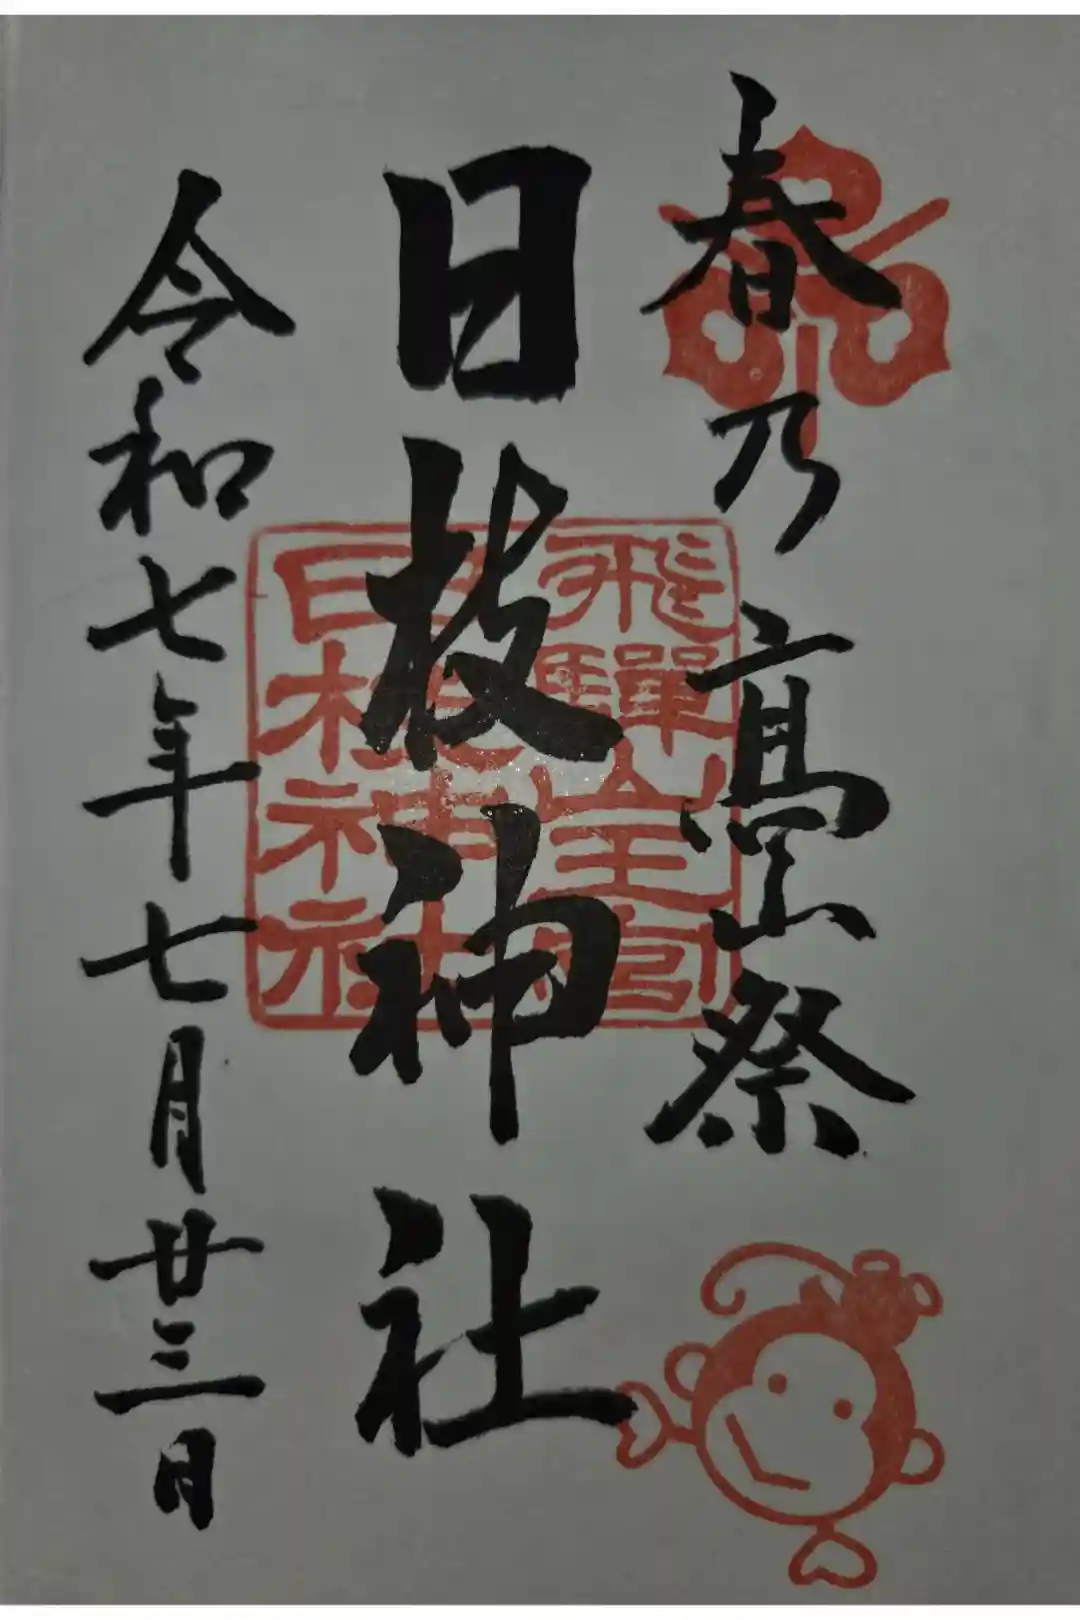 春乃高山祭
飛驒山王宮
日枝神社
日枝神社
令和七年七月廿三日